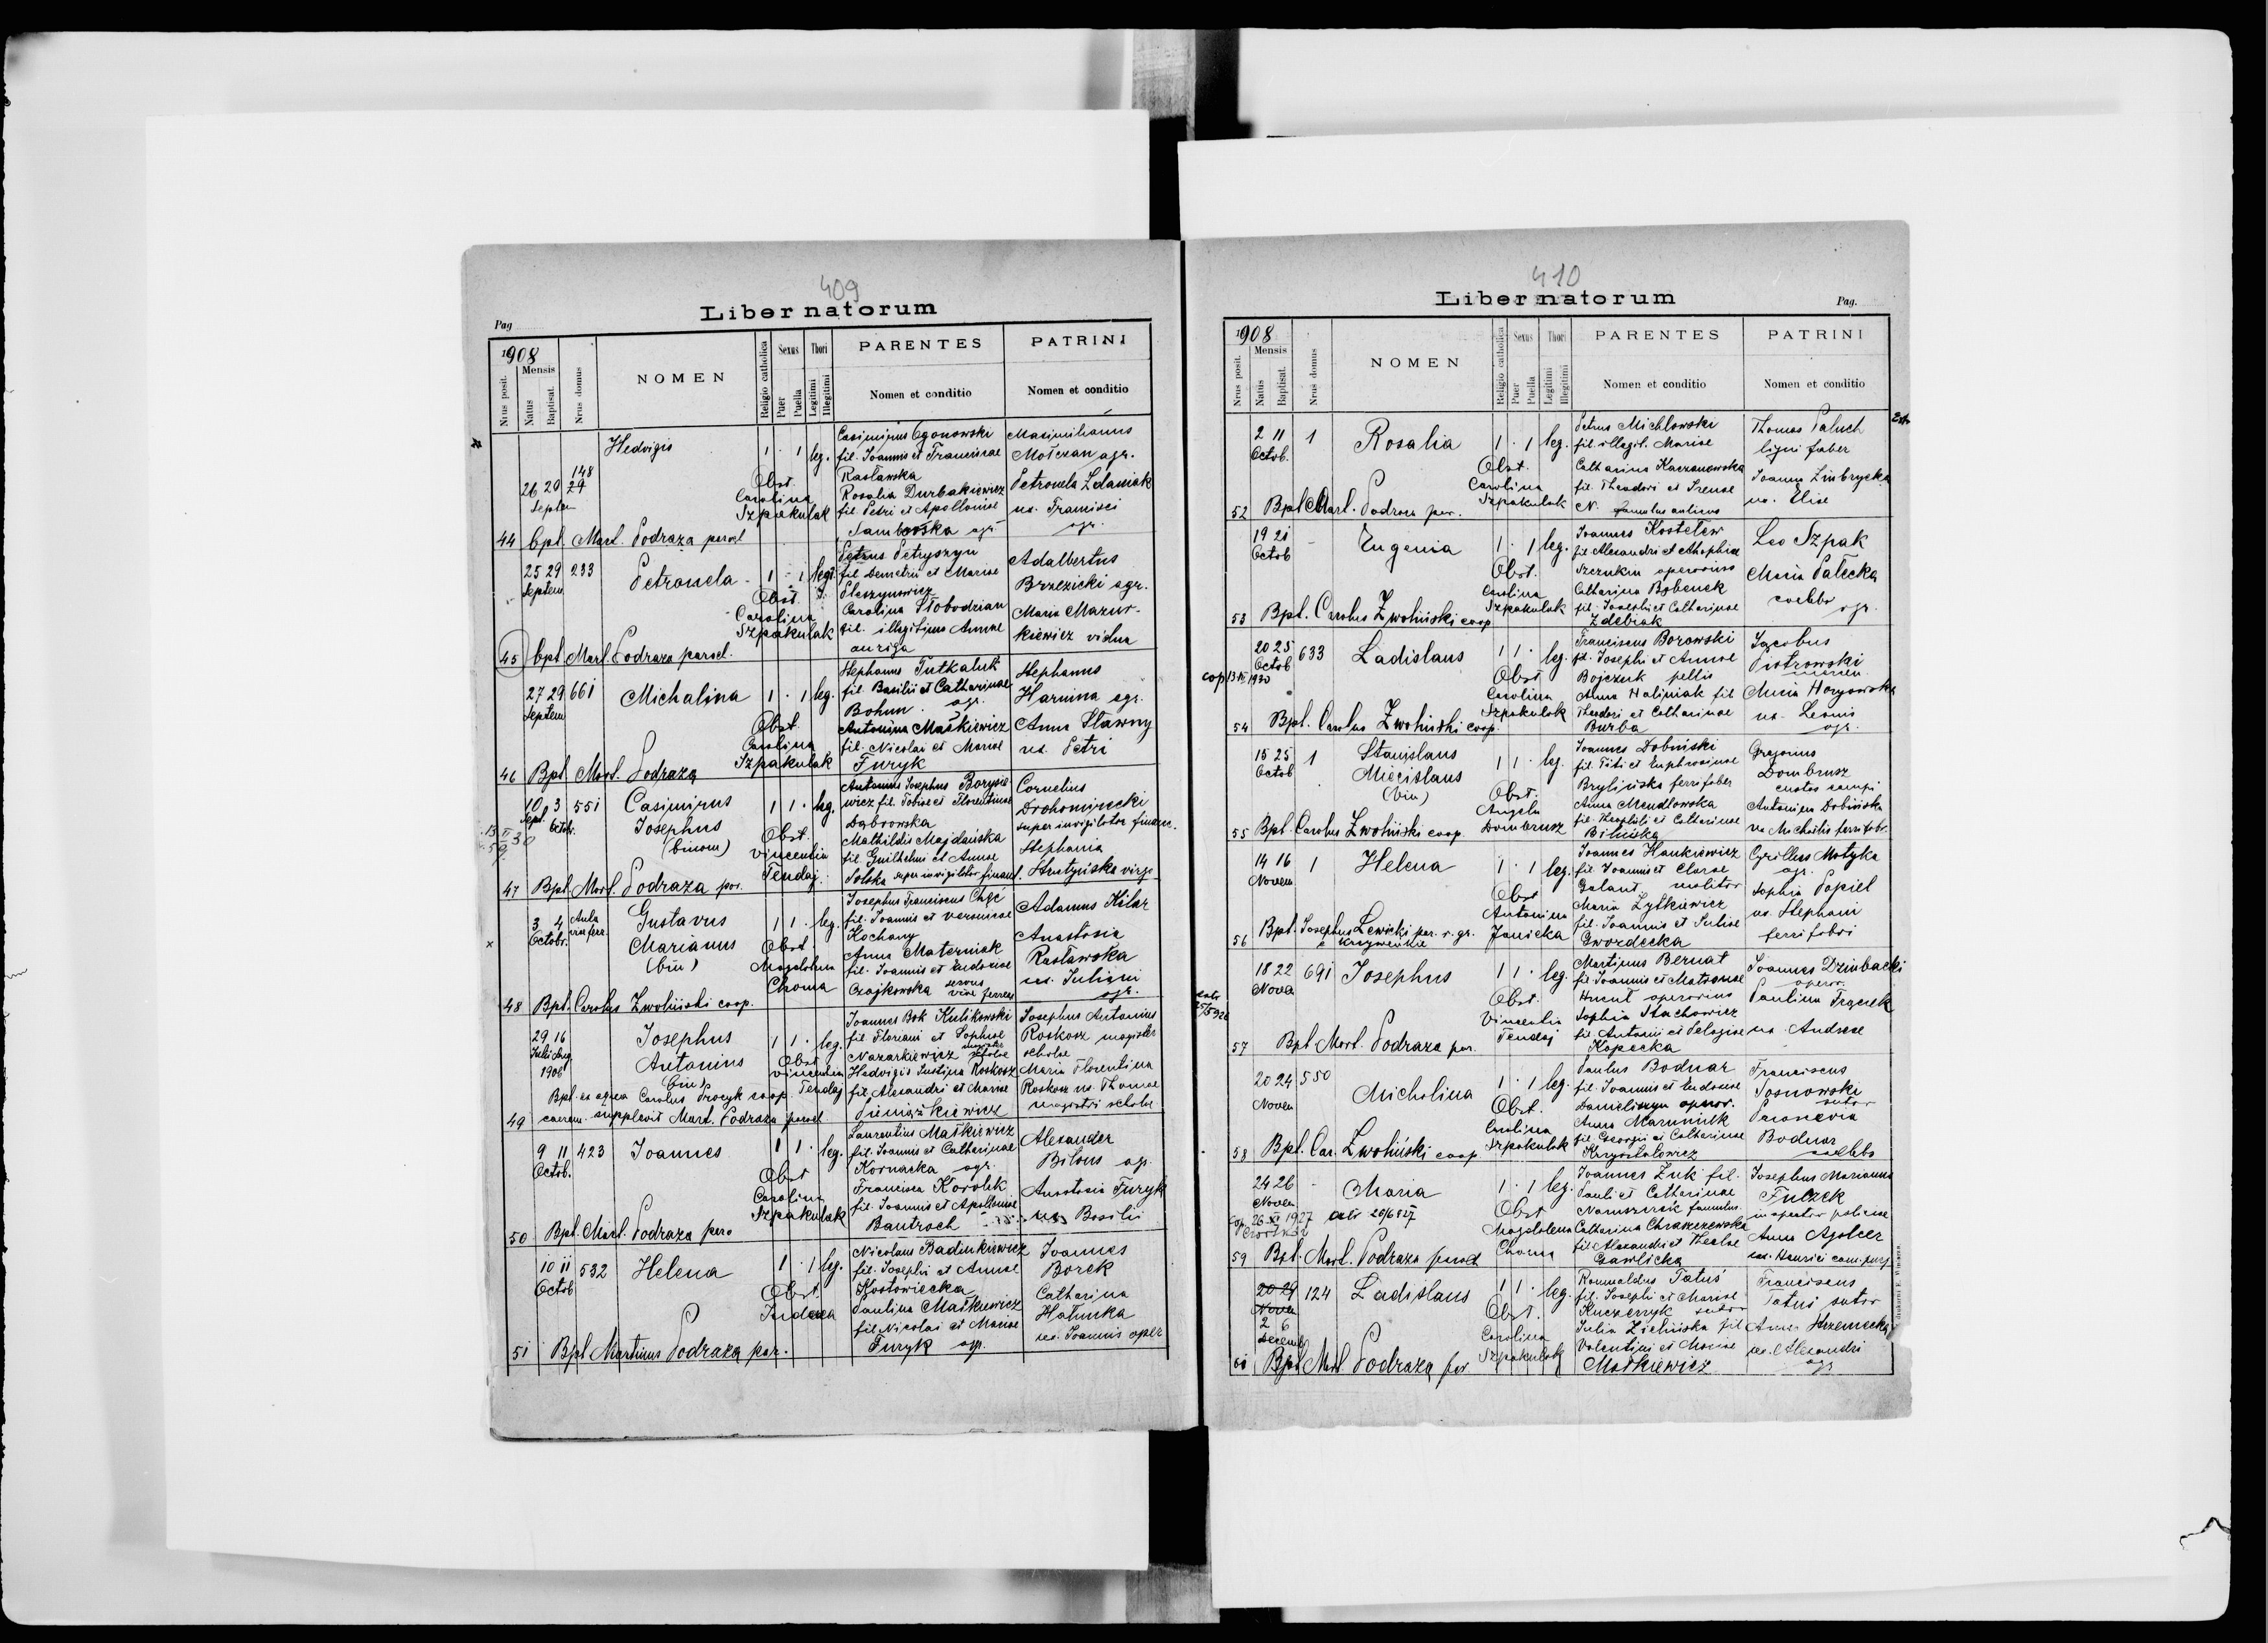 409
Liber natorum
Pag
1908
Mensis
Nrus posit.
Natus
Baptisat.
Nrus domus
NOMEN
Religio catholica
Sexus
Puer
Puella
Thori
Legitimi
Illegitimi
PARENTES
Nomen et conditio
PATRINI
Nomen et conditio
Hedvigis 1 · 1 leg.
26 29 148
Septem
Obst.
Carolina
Szpakulak
Casimirus Ogonowski
fil. Joannis et Franciscae
Rasławska
Rosalia Durbakiewicz
fil. Petri et Apolloniae
Samborska agr.
Maximilianus
Mołczan agr.
Petronela Zdaniak
ux. Francisci
agr.
44 bpt. Mart. Podraza paroch
25 29 233 Petronela 1 - 1 legt.
Septem
Obst.
Carolina
Szpakulak
Petrus Petryszyn
fil. Demetrii et Mariae
Pleszynowicz
Carolina Słobodzian
fil. illegitima Annae
auriga
Adalbertus
Brzezicki agr.
Maria Mazur-
kiewicz vidua
45 bpt. Mart. Podraza paroch.
27 29 661 Michalina 1 · 1 leg.
Septem
Obst.
Carolina
Szpakulak
Stephanus Tutkaluk
fil. Basilii et Catharinae
Bohun agr.
Antonina Maśkiewicz
fil. Nicolai et Mariae
Furyk
Stephanus
Harnina agr.
Anna Sławny
ux. Petri
46 Bpt. Mart. Podraza
10 3 551 Casimirus 1 1 · leg.
Sept. Octob.
Josephus
(binom)
Obst.
Vincentia
Tendaj
Antonius Josephus Borysie-
wicz fil. Tobiae et Florentinae
Dąbrowska
Mathildis Majdańska
fil. Guilhelmi et Annae
Solska super invigilator finant.
Cornelius
Drohomirecki
super invigilator financ.
Stephania
Hrutyńska virgo
47 Bpt. Mart. Podraza par.
3 4 Aula
Octobr. viae ferr.
Gustavus 1 1 · leg.
Marianus
(bin)
Obst.
Magdalena
Choma
Josephus Franciscus Chyć
fil. Joannis et Veronicae
Kochany
Anna Materniak
fil. Joannis et Eudociae
Czajkowska servus viae ferreae
Adamus Kilar
Anastasia
Rasławska
ux. Juliani
agr.
48 Bpt. Carolus Zwoliński coop.
29 16 Josephus 1 1 · leg.
Julii Aug
1906
Antonius
(bin)
Obst.
Vincentia
Tendaj
Joannes Bok Kulikowski
fil. Floriani et Sophiae
Nazarkiewicz magister scholae
Hedvigis Justina Roskosz
fil. Alexandri et Mariae
Pieniążkiewicz
Josephus Antonius
Roskosz magister
scholae
Maria Florentina
Roskosz ux. Thomae
magistri scholae
Bpt. ex aqua Carolus Procyk coop.
49 caerem. supplevit Mart. Podraza paroch
9 11 423 Joannes 1 1 · leg.
Octob.
Obst
Carolina
Szpakulak
Laurentius Maśkiewicz
fil. Joannis et Catharinae
Kornacka agr.
Francisca Korolik
fil. Joannis et Apoloniae
Bautroch
Alexander
Bilous agr.
Anastasia Furyk
ux Basilii
50 Bpt. Mart. Podraza paro
10 11 532 Helena 1 · 1 leg.
Octob
Obst.
Judaea
Nicolaus Badinkiewicz
fil. Josephi et Annae
Kostowiecka
Paulina Maśkiewicz
fil Nicolai et Mariae
Furyk agr.
Joannes
Borek
Catharina
Hałunka
ux. Joannis oper
51 Bpt Martinus Podraza par.
410
Liber natorum
Pag.
1908
Mensis
Nrus posit.
Natus
Baptisat.
Nrus domus
NOMEN
Religio catholica
Sexus
Puer
Puella
Thori
Legitimi
Illegitimi
PARENTES
Nomen et conditio
PATRINI
Nomen et conditio
2 11 1 Rosalia 1 · 1 leg.
Octob.
Obst.
Carolina
Szpakulak
Petrus Michlowski
fil. illegit. Mariae
Catharina Kaczanowska
fil. Theodori et Irenae
N. famulus aulicus
Thomas Paluch
ligni faber
Joanna Zimbrycka
ux. Eliae
52 Bpt Mart. Podraza par.
19 21 - Eugenia 1 · 1 leg.
Octob
Obst.
Carolina
Szpakulak
Joannes Kostelew
fil Alexandri et
Szczukin operarius
Catharina Bobenek
fil. Josephi et Catharinae
Zdebiak
Leo Szpak
Maria Pałecka
coelebs
agr.
53 Bpt. Carolus Zwoliński coop
20 25 633 Ladislaus 1 1 · leg.
Octob
cop 13 1930
Obst
Carolina
Szpakulak
Franciscus Borowski
fil. Josephi et Annae
Bojczuk pellio
Anna Haliniak fil
Theodori et Catharinae
Burba
Jacobus
Piotrowski
Anna Horysowska
ux. Leonis
agr.
54 Bpt. Carolus Zwoliński coop.
15 25 1 Stanislaus 1 1 · leg.
Octob
Miecislaus
(bin)
Obst.
Angela
Dombrusz
Joannes Dobiński
fil. Titi et Euphrosinae
Brylińska ferrifaber
Anna Mendlowska
fil. Theophili et Catharinae
Bilińska
Gregorius
Dombrusz
custos campi
Antonina Dobińska
ux Michaelis ferrifabr.
55 Bpt. Carolus Zwoliński coop.
14 16 1 Helena 1 · 1 leg.
Novem
Obst
Antonina
Janicka
Joannes Hankiewicz
fil. Joannis et Clarae
Galant molitor
Maria Zytkiewicz
fil. Joannis et Juliae
Gwozdecka
Cyrillus Motyka
agr.
Sophia Popiel
ux. Stephani
ferri fabri
56 Bpt. Josephus Lewicki par. r. gr.
e Krzyweńkie
18 22 691 Josephus 1 1 · leg.
Nova
Obst.
Vincentia
Tendaj
Martinus Bernat
fil. Joannis et Matronae
Hucul operarius
Sophia Stachowicz
fil. Antonii et Pelagiae
Kopecka
Joannes Dzimbacki
operar.
Paulina Frączek
ux. Andreae
57 Bpt. Mart. Podraza par.
20 24 550 Michalina 1 · 1 leg.
Novem
Obst.
Carolina
Szpakulak
Paulus Bodnar
fil. Joannis et Eudociae
Daniliszyn operar.
Anna Maruniak
fil. Georgii et Catharinae
Krysztalowicz
Franciscus
Sosnowski
sutor
Parascevia
Bodnar
coelebs
58 Bpt. Car. Zwoliński coop
24 26 - Maria 1 · 1 leg.
Novem
cop. 26 XI 1927
Czortków
Obst
Magdalena
Choma
Joannes Żuk fil.
Pauli et Catharinae
famulus.
Catharina Chraszczewska
fil Alexandri et Theclae
Gawlicka
Josephus Marianus
Fulczek
inspector policiae
Anna Agolcer
ux. Henrici
59 Bpt. Mart. Podraza paroch
20 29 124 Ladislaus 1 1 · leg.
Novem
2 6
Decemb
Obst.
Carolina
Szpakulak
Romualdus Tatuś
fil. Josephi et Mariae
Kuczerzyk sutor
Julia Zielińska fil
Valentini et Mariae
Maśkiewicz
Franciscus
Tatuś sutor
Anna Strzemecka
ux. Alexandri
agr
60 Bpt Mart Podraza par